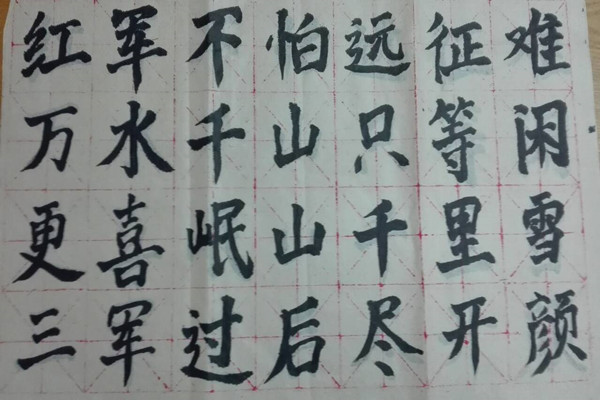 红军不怕远征难
万水千山只等闲
更喜岷山千里雪
三军过后尽开颜